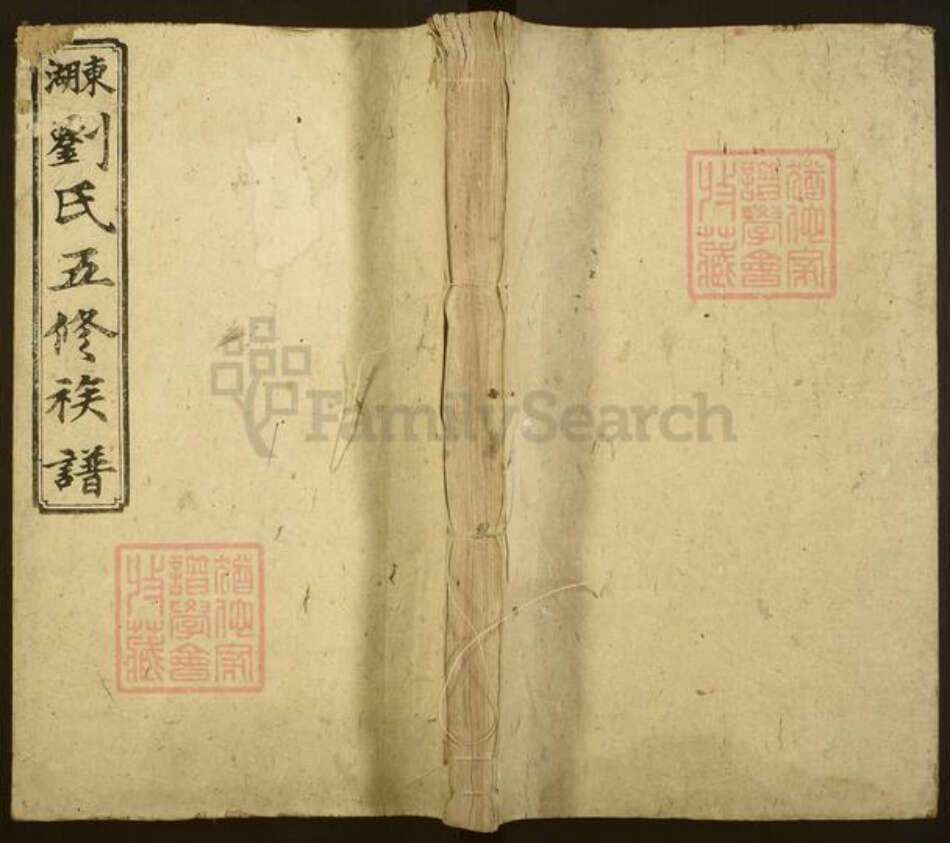 東湖
劉氏五修族譜
猶他家
譜學會
收藏
FamilySearch
猶他家
譜學會
收藏